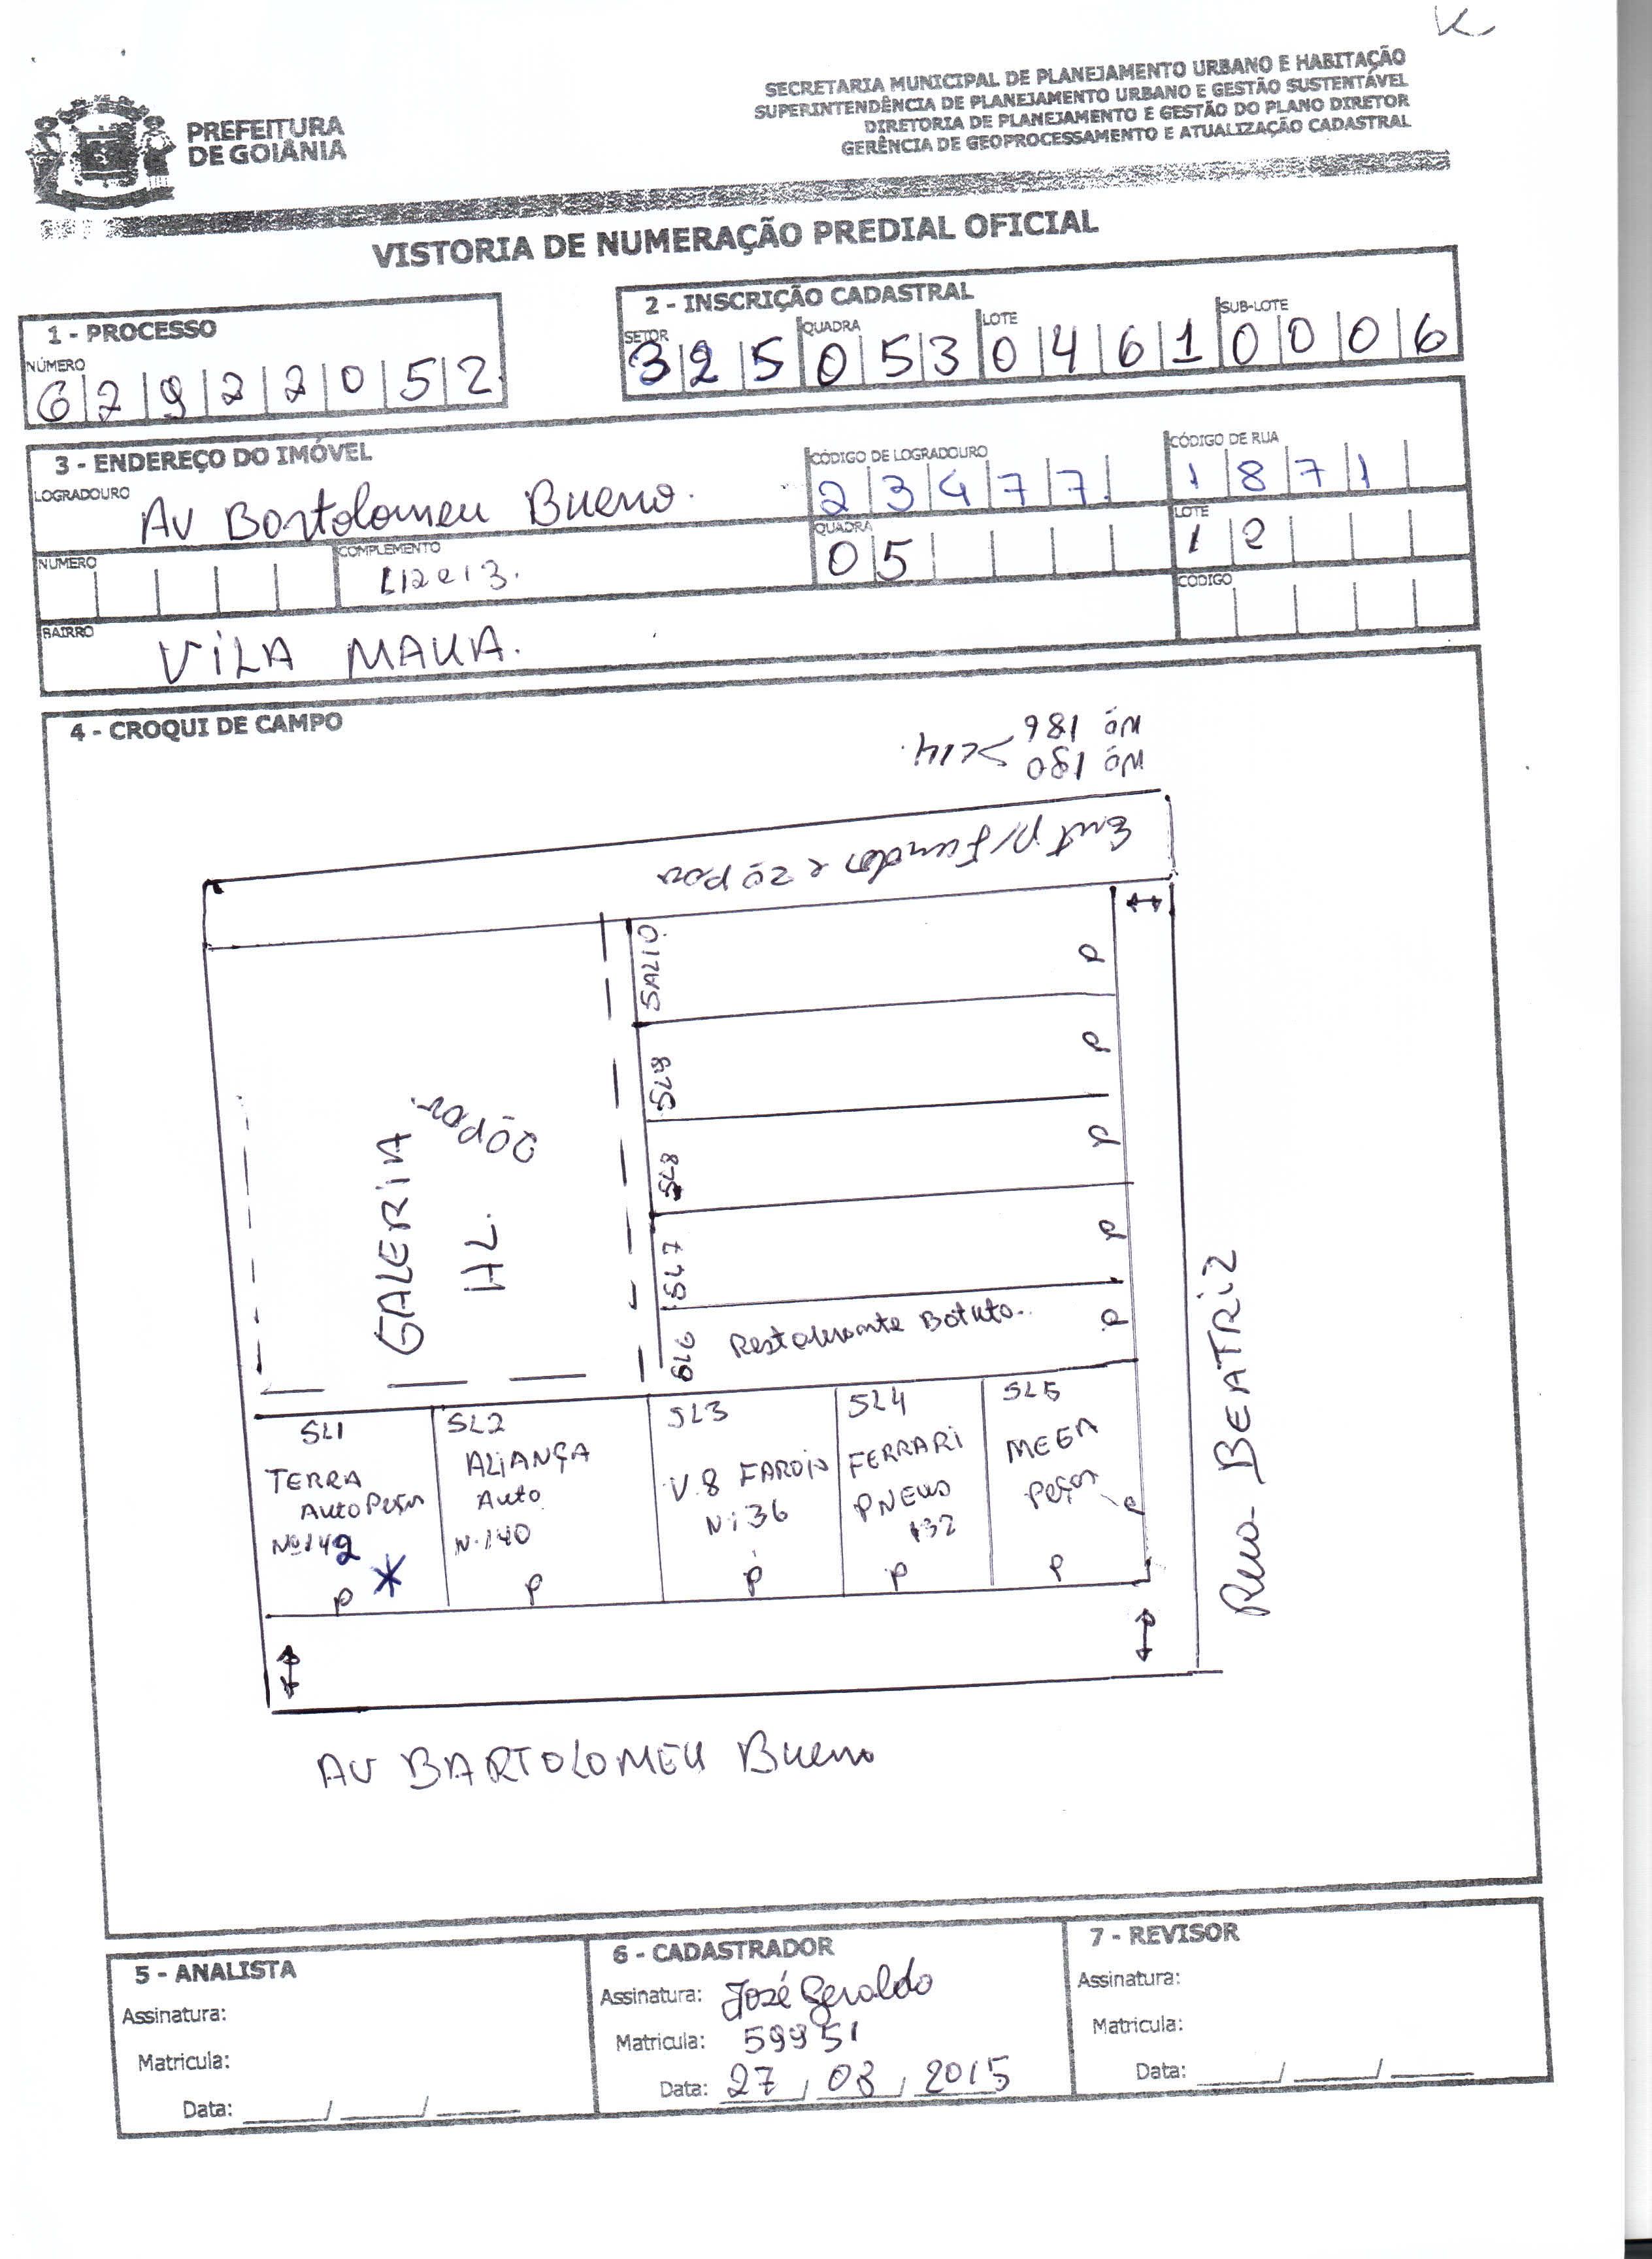 SECRETARIA MUNICIPAL DE PLANEJAMENTO URBANO E HABITAÇÃO
SUPERINTENDÊNCIA DE PLANEJAMENTO URBANO E GESTÃO SUSTENTÁVEL
DIRETORIA DE PLANEJAMENTO E GESTÃO DO PLANO DIRETOR
GERÊNCIA DE GEOPROCESSAMENTO E ATUALIZAÇÃO CADASTRAL
PREFEITURA
DE GOIÂNIA
VISTORIA DE NUMERAÇÃO PREDIAL OFICIAL
1 - PROCESSO
NÚMERO
6 2 9 2 2 0 5 2
2 - INSCRIÇÃO CADASTRAL
SETOR QUADRA LOTE SUB-LOTE
3 2 5 0 5 3 0 4 6 1 0 0 0 6
3 - ENDEREÇO DO IMÓVEL
LOGRADOURO Av Bartolomeu Bueno.
CÓDIGO DE LOGRADOURO
2 3 4 7 7
CÓDIGO DE RUA
1 8 7 1
NÚMERO
COMPLEMENTO
L12e13.
QUADRA
0 5
LOTE
1 2
BAIRRO VILA MAUA.
CÓDIGO
4 - CROQUI DE CAMPO
Nº 186
Nº 180 >L14.
Ent p/ Fundos e 2º pav
SAL10
SL9
SL8
SL7
SL6
P
P
P
P
P
GALERIA
HL.
2º pav.
Restaurante Batuta..
SL1
TERRA
Auto Peças
Nº 142
P
SL2
ALIANÇA
Auto
N. 140
P
SL3
V.8 FAROIS
N 136
P
SL4
FERRARI
PNEUS
132
P
SL5
MEGA
Peças
P
P
Rua BEATRIZ
AV BARTOLOMEU Bueno
5 - ANALISTA
Assinatura:
Matricula:
Data: ____/____/____
6 - CADASTRADOR
Assinatura: José Geraldo
Matricula: 59951
Data: 27 / 08 / 2015
7 - REVISOR
Assinatura:
Matricula:
Data: ____/____/____